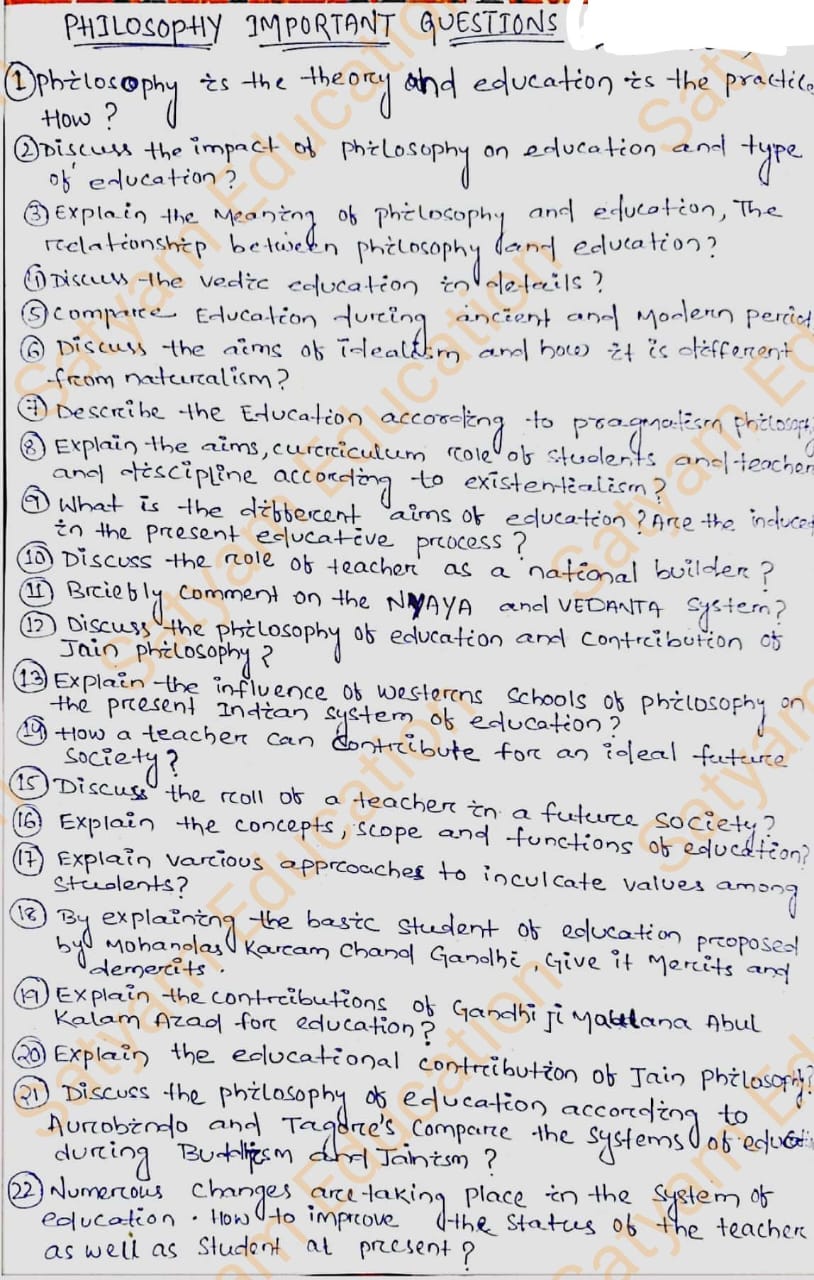 PHILOSOPHY IMPORTANT QUESTIONS
① Philosophy is the theory and education is the practice
How ?
② Discuss the impact of philosophy on education and type
of education ?
③ Explain the Meaning of philosophy and education, The
relationship between philosophy and education?
④ Discuss the vedic education in details ?
⑤ Compare Education during ancient and Modern period
⑥ Discuss the aims of idealism and how it is different
from naturalism?
⑦ Describe the Education according to pragmatism philosophy
⑧ Explain the aims, curriculum role of students and teacher
and discipline according to existentialism?
⑨ What is the different aims of education ? Are the
in the present educative process ?
⑩ Discuss the role of teacher as a national builder ?
⑪ Briefly comment on the NYAYA and VEDANTA system?
⑫ Discuss the philosophy of education and contribution of
Jain philosophy ?
⑬ Explain the influence of westerns schools of philosophy on
the present Indian system of education ?
⑭ How a teacher can contribute for an ideal future
society ?
⑮ Discuss the roll of a teacher in a future society?
⑯ Explain the concepts, scope and functions of education?
⑰ Explain various approaches to inculcate values among
students?
⑱ By explaining the basic student of education proposed
by Mohandas Karam Chand Gandhi, Give it Merits and
demerits .
⑲ Explain the contributions of Gandhi ji Maulana Abul
Kalam Azad for education ?
⑳ Explain the educational contribution of Jain Philosophy?
㉑ Discuss the philosophy of education according to
Aurobindo and Tagore's Compare the systems of education
during Buddhism and Jainism ?
㉒ Numerous changes are taking place in the system of
education . How to improve the status of the teacher
as well as student at present ?
Satyam Education